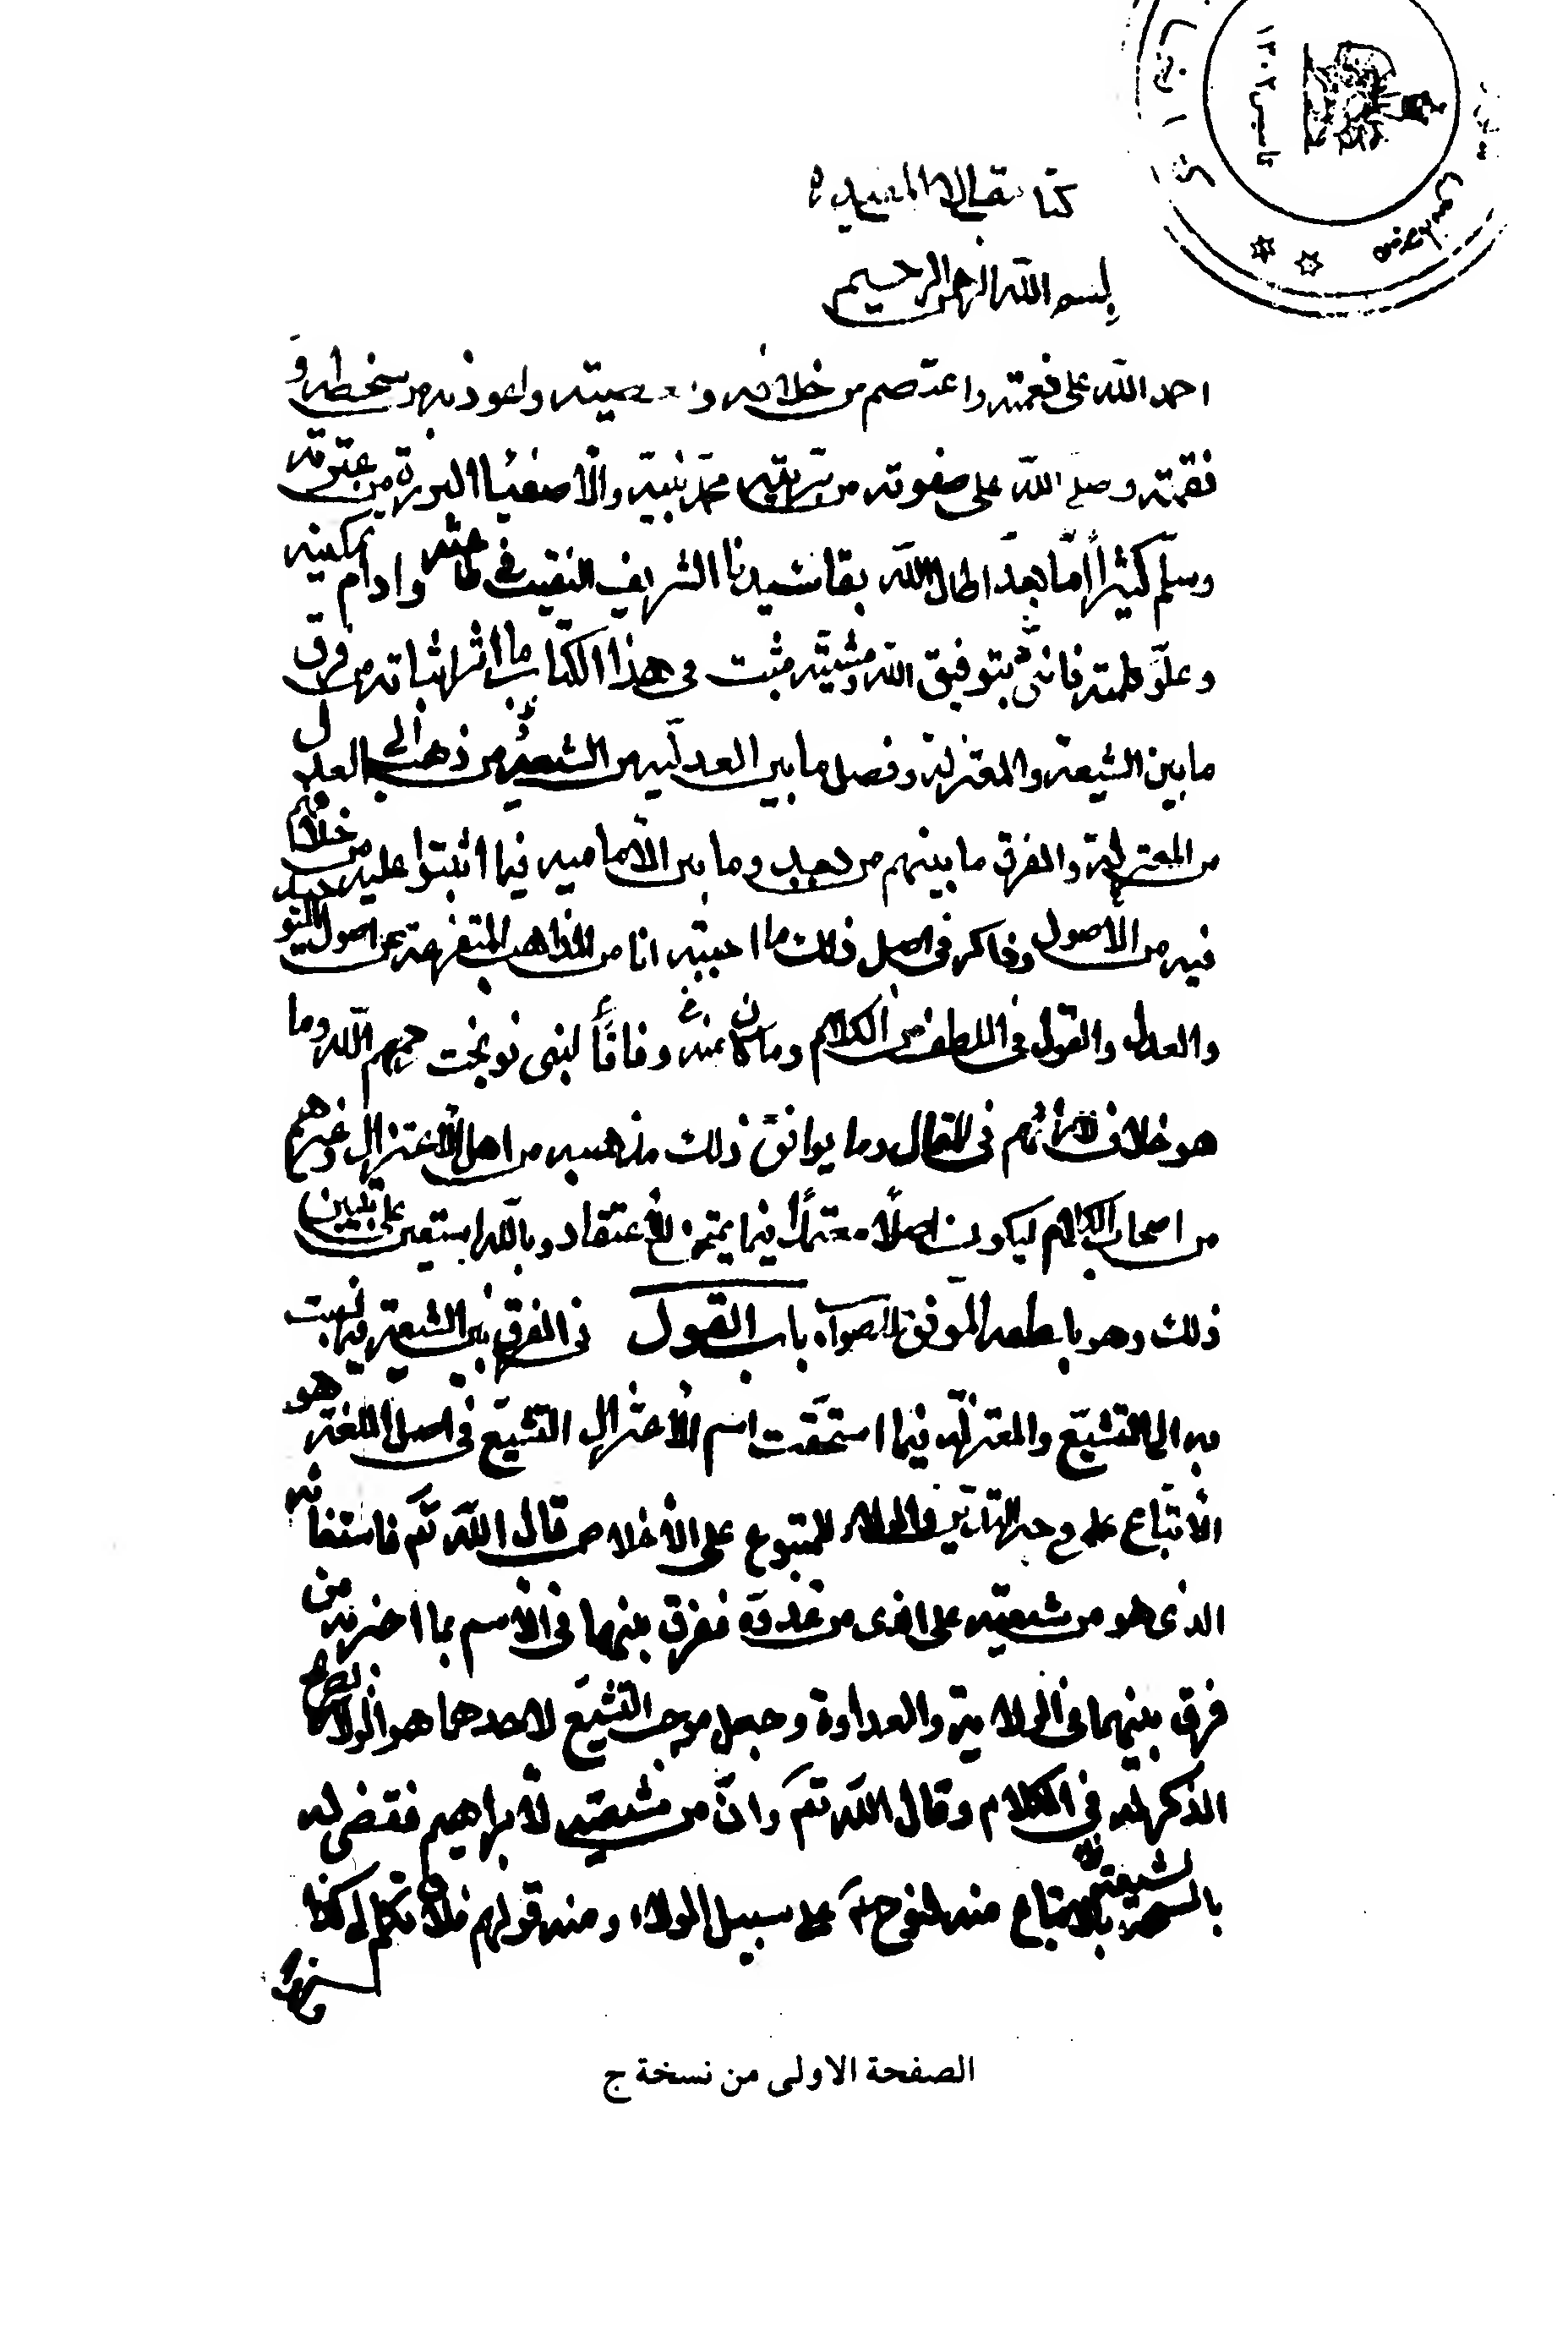 كتا مقالات المفيد ه
بسم الله الرحمن الرحيم
احمد الله على نعمته واعتصم من خلافه و معصيته واعوذ به من سخطه و
نقمته وصلى الله على صفوته من بريته محمد نبيه والأصفيا البررة من عترته
وسلم كثيراً امّا بعد اطال الله بقا سيدنا الشريف النقيب فى طاعته وادام تمكينه
وعلوّ كلمته فانى بتوفيق الله ومشيته مثبت فى هذا الكتاب ما اثر اثباته من فرق
ما بين الشيعة والمعتزلة وفصل ما بين العدلية من الشيعة ومن ذهب الى العدل
من المعتزلة والفرق ما بينهم من بعد وما بين الأمامية فيما اتفقوا عليه من خلافهم
فيه من الأصول وذاكر فى اصل ذلك ما اجتبيته انا من المذاهب المتفرعة عن اصول التوحيد
والعدل والقول فى اللطف من الكلام وما كان منه وفاقاً لبنى نوبخت رحمهم الله وما
هو خلاف لآرائهم فى المقال وما يوافق ذلك مذهبه من اهل الأعتزال وغيرهم
من اصحاب الكلام ليكون اصلاً معتمداً فيما يمتحن للأعتقاد وبالله استعين على تبيين
ذلك وهو بلطفه الموفق للصواب باب القول فى الفرق بين الشيعة فيما نسبت
به الى التشيّع والمعتزلة فيما استحقت اسم الأعتزال التشيّع فى اصل اللغة هو
الأتباع على وجه التدين والولاء للمتبوع على الأخلاص قال الله تع فاستغاثه
الذى هو من شيعته على الذى من عدوّه ففرق بينهما فى الأسم بما اخبر به من
فرق بينهما فى الولاية والعداوة وجعل موجب التشيّع لاحدهما هو الولاء بصريح
الذكر له فى الكلام وقال الله تع وانّ من شيعته لأبراهيم فقضى له
بالسمة بالاتباع منه لنوح ع على سبيل الولاء ومنه قولهم فلان تكلم فى كذا
الصفحة الاولى من نسخة ج